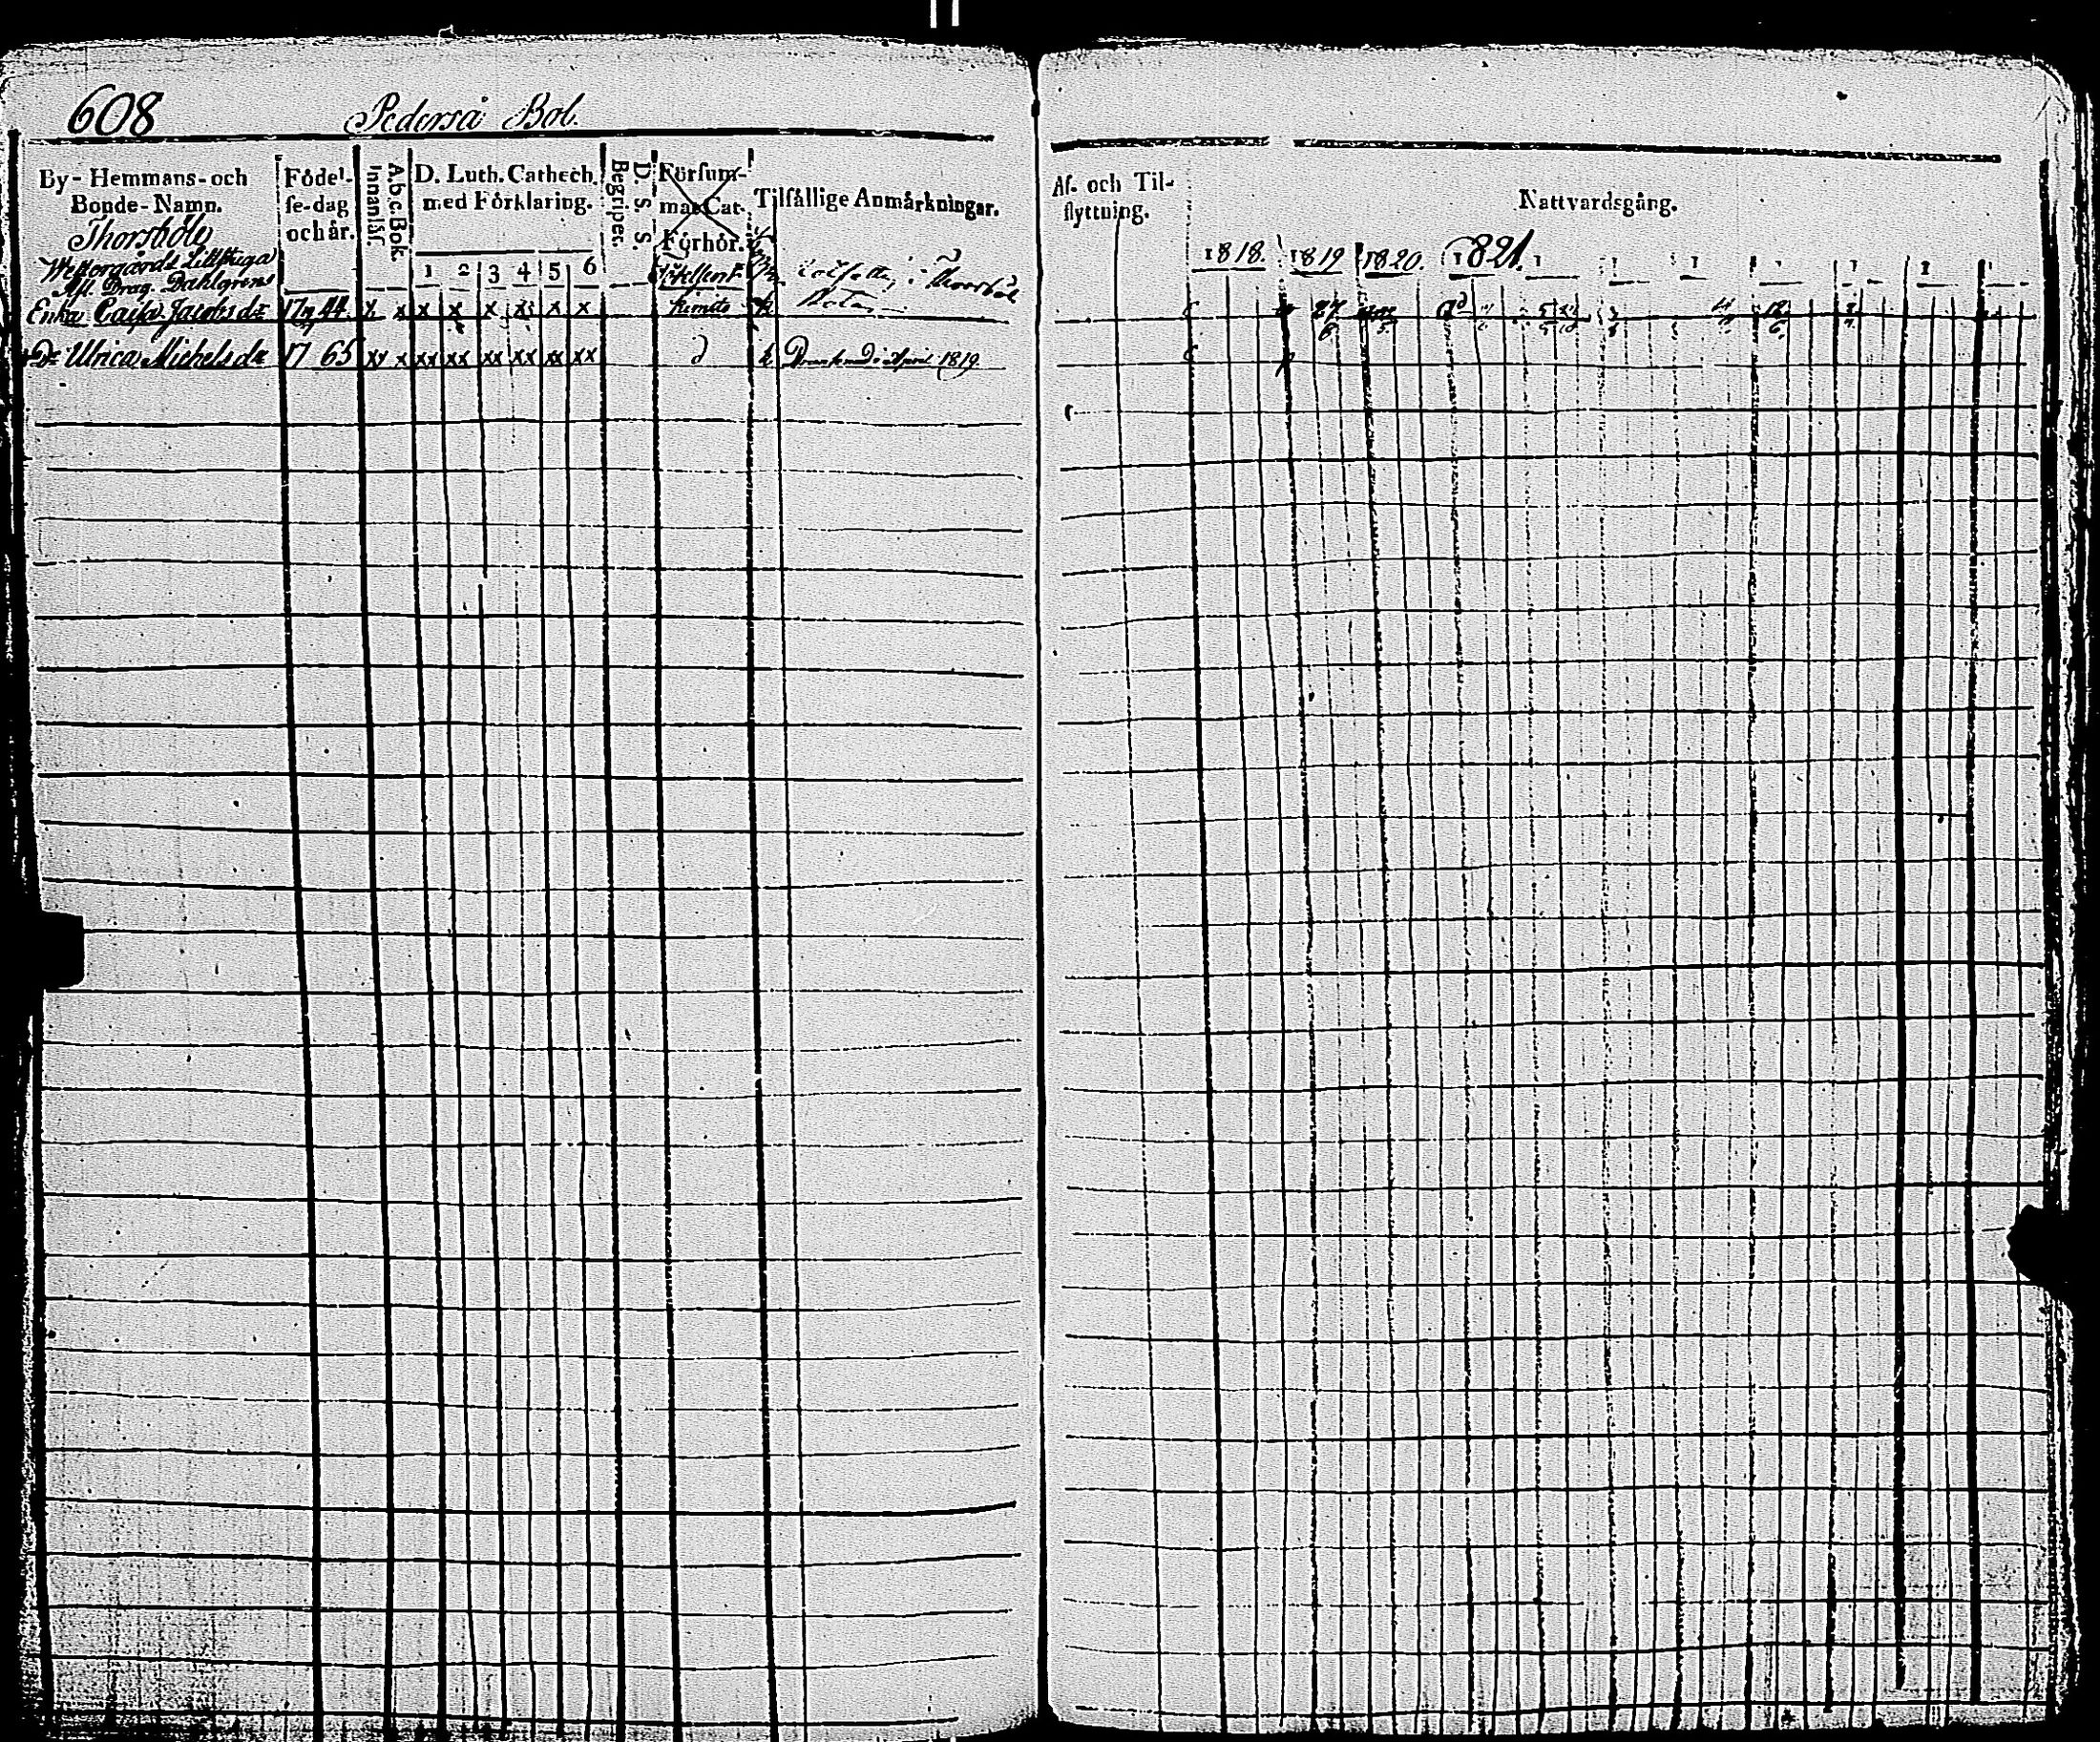 608 Pederså Bol.
By- Hemmans- och
Bonde- Namn.
Födel-
se-dag
och år.
A.b.c. Bok
Innanläs.
D. Luth. Cathech.
med Förklaring.
1 2 3 4 5 6
D. S. S.
Begriper.
Försum-
mat Cat.
Förhör.
Tilfällige Anmärkningar.
Thorsböle
Westergårds Lillstuga
Afl. Drag. Dahlgrens
Enka Caisa Jacobsdr 17 44 x x x x x x x x Kimito
Dr Ulrica Michelsdr 17 65 xx x xx xx xx xx xx xx d April 1819.
Af- och Til-
flyttning.
Nattvardsgång.
1818. 1819 1820. 1821.